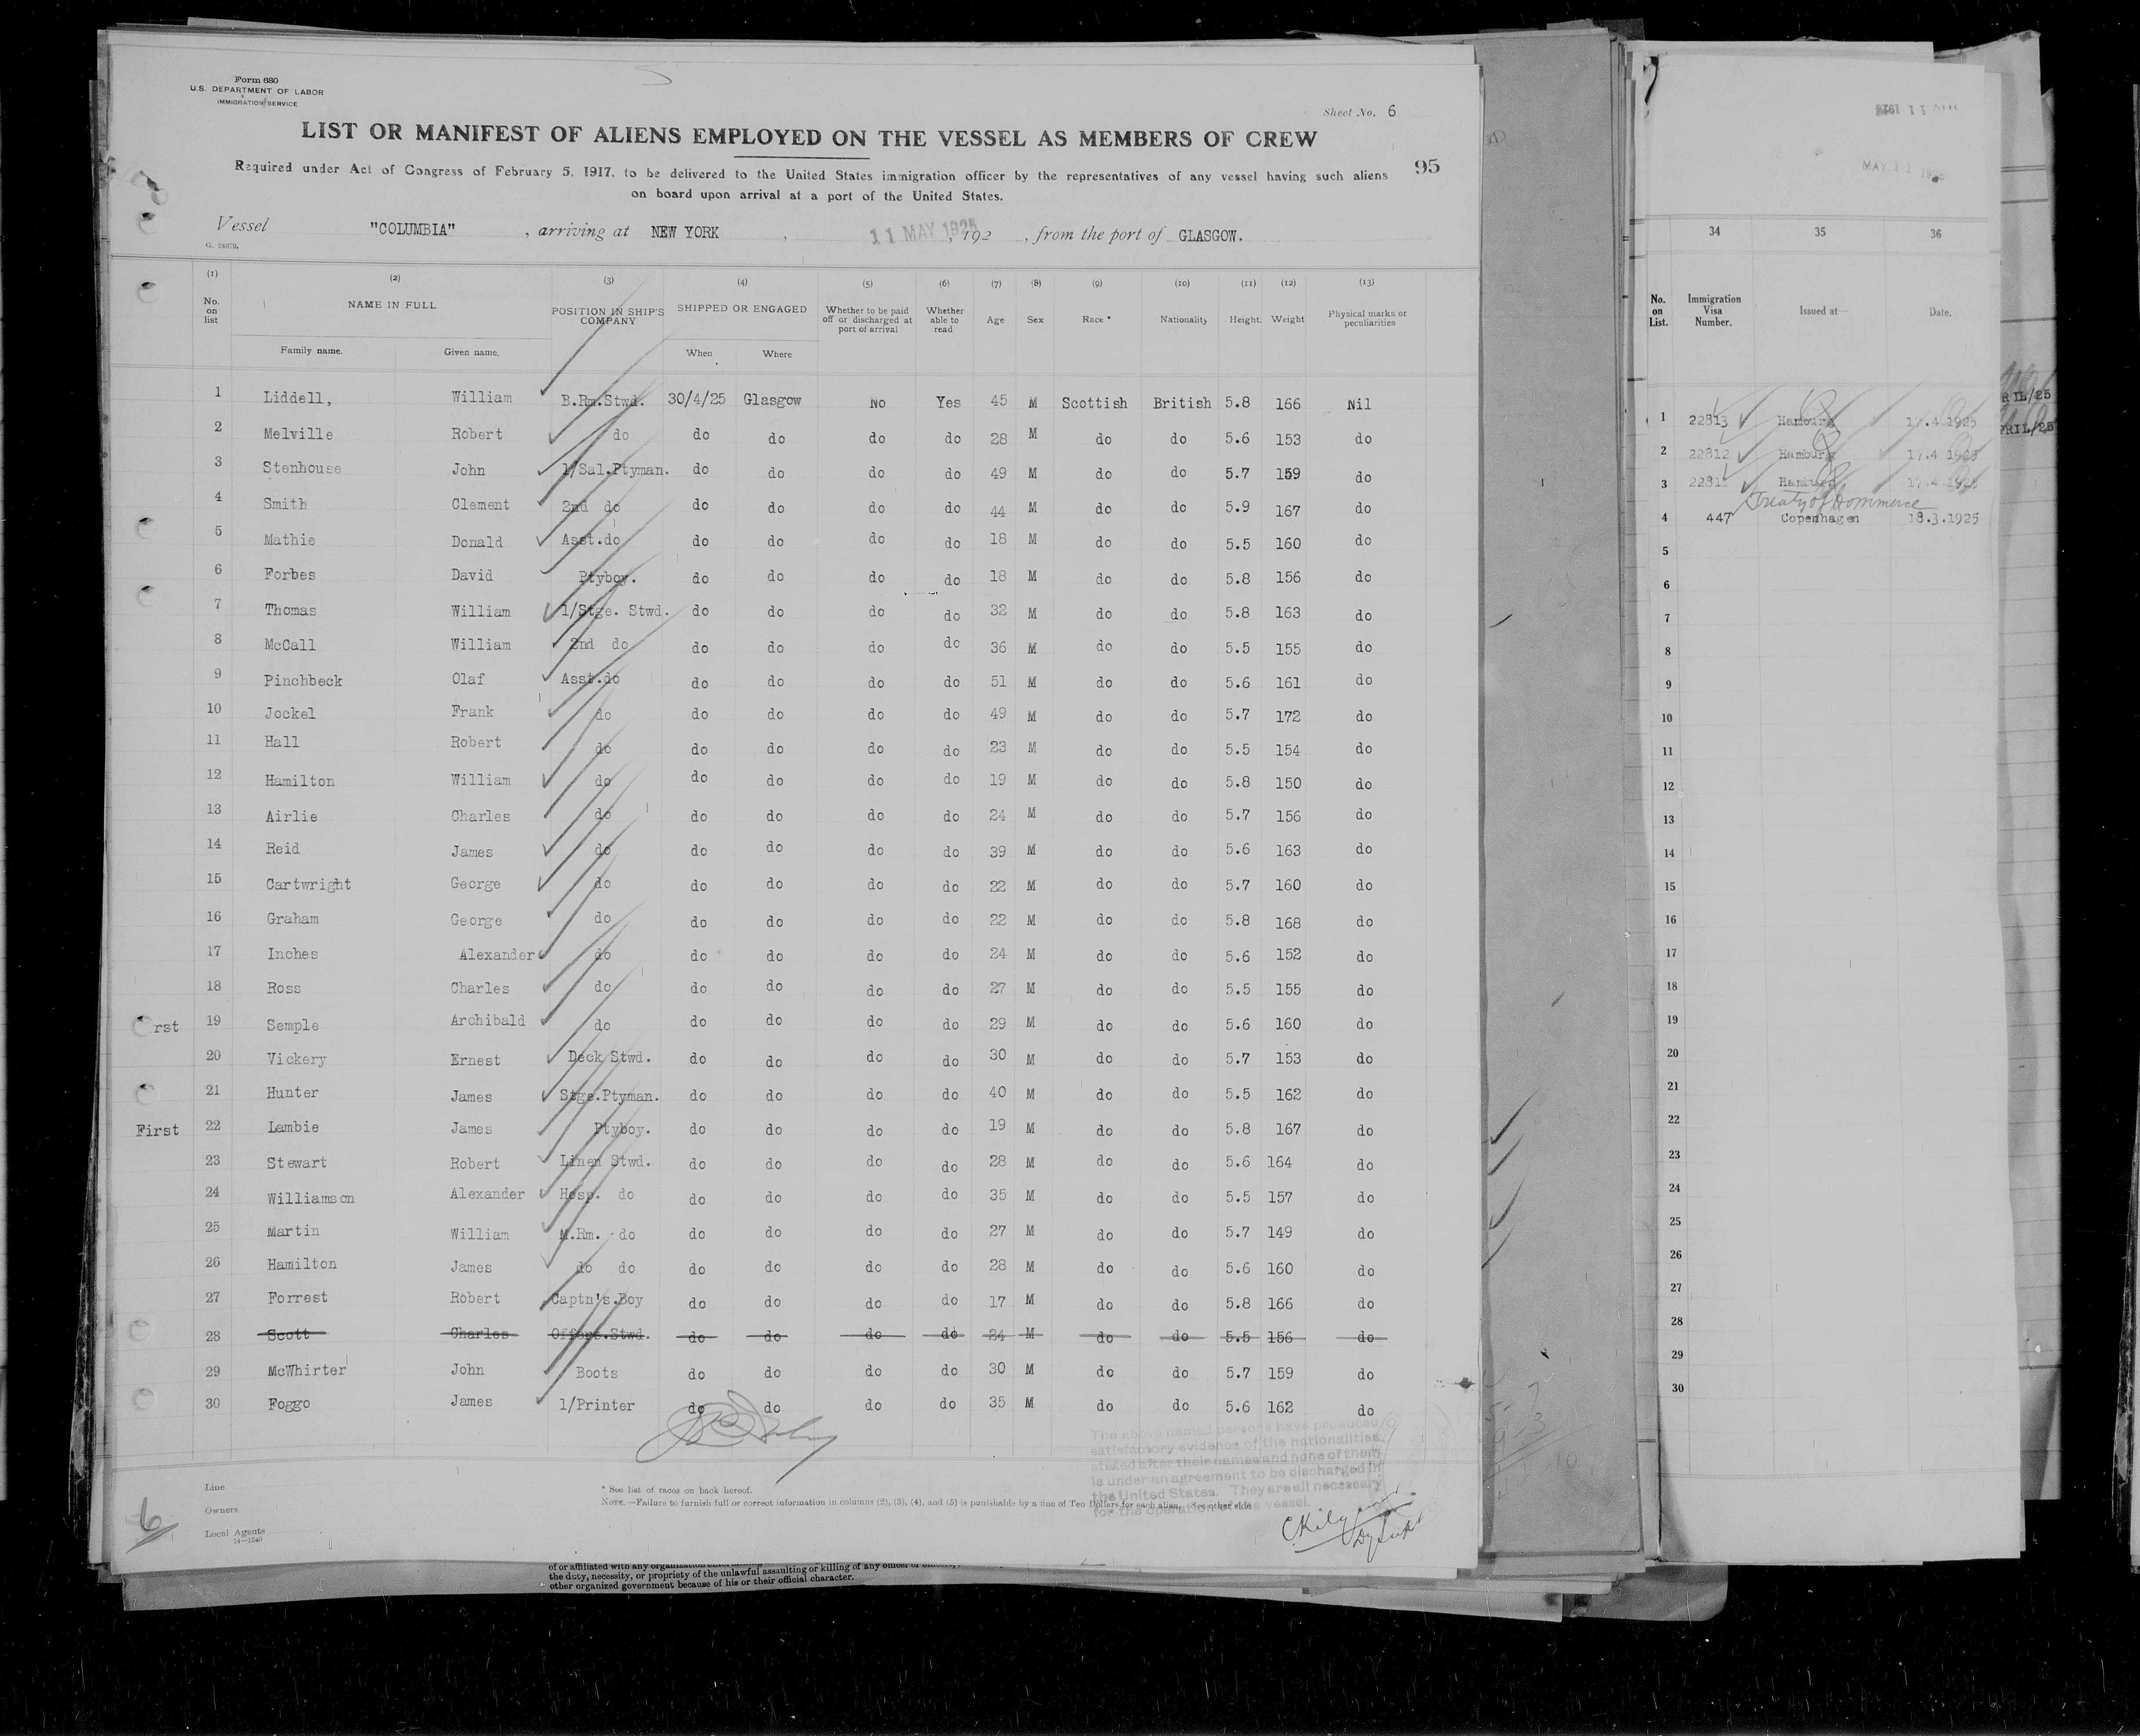 Form 680
U.S. DEPARTMENT OF LABOR
IMMIGRATION SERVICE
Sheet No. 6
LIST OR MANIFEST OF ALIENS EMPLOYED ON THE VESSEL AS MEMBERS OF CREW
95
Required under Act of Congress of February 5, 1917, to be delivered to the United States immigration officer by the representatives of any vessel having such aliens
on board upon arrival at a port of the United States.
Vessel "COLUMBIA" , arriving at NEW YORK , 11 MAY 1925 , 192 , from the port of GLASGOW.
(1) (2) (3) (4) (5) (6) (7) (8) (9) (10) (11) (12) (13)
No. on list NAME IN FULL POSITION IN SHIP'S COMPANY SHIPPED OR ENGAGED Whether to be paid off or discharged at port of arrival Whether able to read Age Sex Race * Nationality Height Weight Physical marks or peculiarities
Family name. Given name. When Where
1 Liddell, William B.Rm.Stwd. 30/4/25 Glasgow No Yes 45 M Scottish British 5.8 166 Nil
2 Melville Robert do do do do do 28 M do do 5.6 153 do
3 Stenhouse John 1/Sal.Ptyman. do do do do 49 M do do 5.7 159 do
4 Smith Clement 2nd do do do do do 44 M do do 5.9 167 do
5 Mathie Donald Asst.do do do do do 18 M do do 5.5 160 do
6 Forbes David Ptyboy. do do do do 18 M do do 5.8 156 do
7 Thomas William 1/Stge. Stwd. do do do do 32 M do do 5.8 163 do
8 McCall William 2nd do do do do do 36 M do do 5.5 155 do
9 Pinchbeck Olaf Asst.do do do do do 51 M do do 5.6 161 do
10 Jockel Frank do do do do do 49 M do do 5.7 172 do
11 Hall Robert do do do do do 23 M do do 5.5 154 do
12 Hamilton William do do do do do 19 M do do 5.8 150 do
13 Airlie Charles do do do do do 24 M do do 5.7 156 do
14 Reid James do do do do do 39 M do do 5.6 163 do
15 Cartwright George do do do do do 22 M do do 5.7 160 do
16 Graham George do do do do do 22 M do do 5.8 168 do
17 Inches Alexander do do do do do 24 M do do 5.6 152 do
18 Ross Charles do do do do do 27 M do do 5.5 155 do
rst 19 Semple Archibald do do do do do 29 M do do 5.6 160 do
20 Vickery Ernest Deck Stwd. do do do do 30 M do do 5.7 153 do
21 Hunter James Stge.Ptyman. do do do do 40 M do do 5.5 162 do
First 22 Lambie James Ptyboy. do do do do 19 M do do 5.8 167 do
23 Stewart Robert Linen Stwd. do do do do 28 M do do 5.6 164 do
24 Williamson Alexander Hosp. do do do do do 35 M do do 5.5 157 do
25 Martin William M.Rm. do do do do do 27 M do do 5.7 149 do
26 Hamilton James do do do do do do 28 M do do 5.6 160 do
27 Forrest Robert Captn's.Boy do do do do 17 M do do 5.8 166 do
28 Scott Charles Offors.Stwd. do do do do 24 M do do 5.5 156 do
29 McWhirter John Boots do do do do 30 M do do 5.7 159 do
30 Foggo James 1/Printer do do do do 35 M do do 5.6 162 do
The above named persons have produced
satisfactory evidence of the nationalities
stated after their names and none of them
is under an agreement to be discharged in
the United States. They are all necessary
for the operation of the vessel.
Line
Owners
Local Agents
14—1240
6
* See list of races on back hereof.
NOTE.—Failure to furnish full or correct information in columns (2), (3), (4), and (5) is punishable by a fine of Ten Dollars for each alien. See other side
the duty, necessity, or propriety of the unlawful assaulting or killing of any officer or
other organized government because of his or their official character.
MAY 11
34 35 36
No. on List. Immigration Visa Number. Issued at— Date.
1 22813 Hamburg 17.4.1925
2 22812 Hamburg 17.4.1925
3 Hamburg 17.4.1925
Treaty of Commerce
4 447 Copenhagen 18.3.1925
5
6
7
8
9
10
11
12
13
14
15
16
17
18
19
20
21
22
23
24
25
26
27
28
29
30
RIL/25
PRIL/25